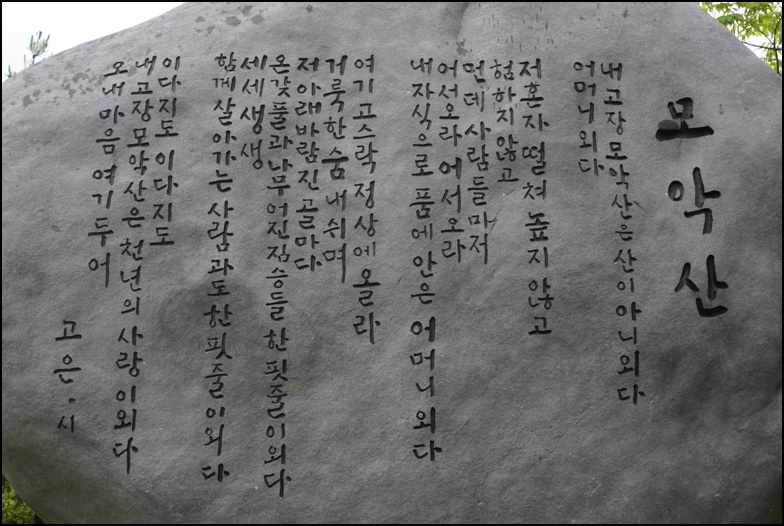 모악산
내 고장 모악산은 산이 아니외다
어머니외다
저 혼자 떨쳐 높지 않고
험하지 않고
먼데 사람들마저
어서 오라 어서 오라
내 자식으로 품에 안은 어머니외다
여기 고스락 정상에 올라
거룩한 숨 내쉬며
저 아래 바람진 골마다
온갖 풀과 나무 어진 짐승들 한 핏줄이외다
세세생생
함께 살아가는 사람과도 한 핏줄이외다
이다지도 이다지도
내 고장 모악산은 천년의 사랑이외다
오 내 마음 여기 두어
고은 · 시